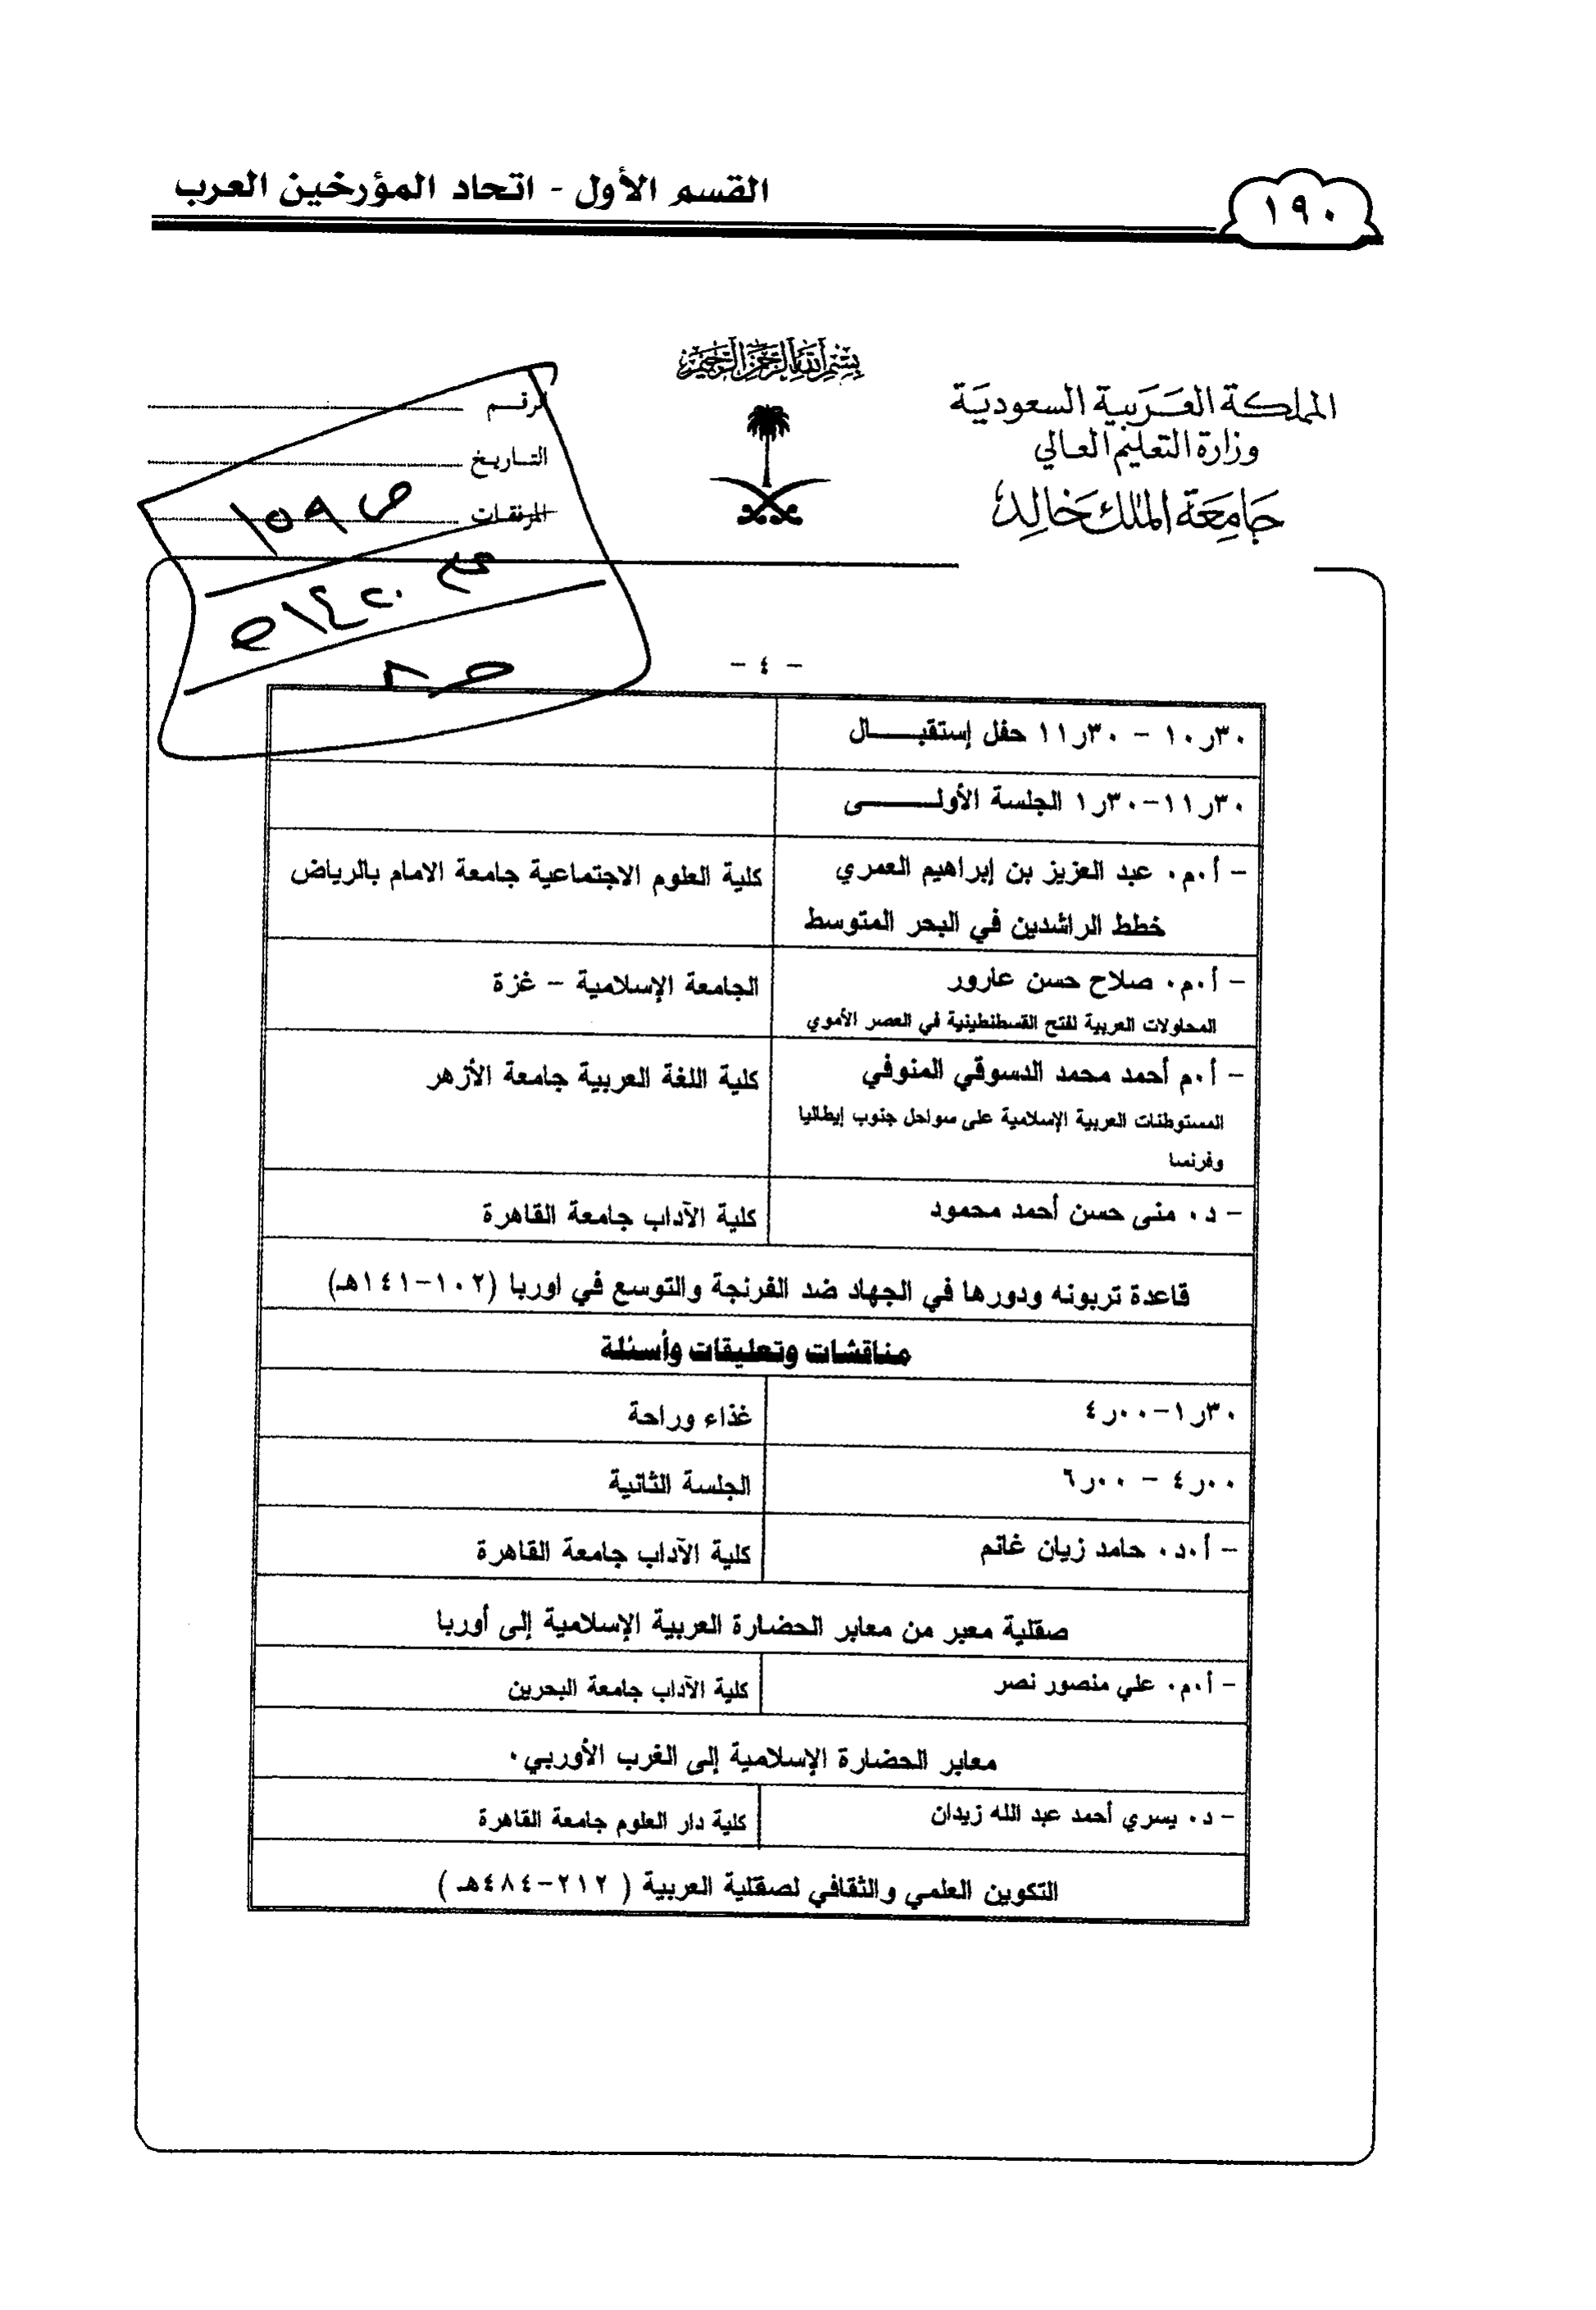 القسم الأول - اتحاد المؤرخين العرب
١٩٠
بسم الله الرحمن الرحيم
المملكة العربية السعودية
وزارة التعليم العالي
جامعة الملك خالد
الرقم
التاريخ
المرفقات
ص ١٥٩
١٤٢٠هـ
- ٤ -
٣٠ر١٠ - ٣٠ر١١ حفل إستقبـــــال
٣٠ر١١-٣٠ر١ الجلسة الأولـــــــى
- أ٠م٠ عبد العزيز بن إبراهيم العمري
خطط الراشدين في البحر المتوسط
كلية العلوم الاجتماعية جامعة الامام بالرياض
- أ٠م٠ صلاح حسن عارور
المحاولات العربية لفتح القسطنطينية في العصر الأموي
الجامعة الإسلامية - غزة
- أ٠م أحمد محمد الدسوقي المنوفي
المستوطنات العربية الإسلامية على سواحل جنوب إيطاليا
وفرنسا
كلية اللغة العربية جامعة الأزهر
- د٠ منى حسن أحمد محمود
كلية الآداب جامعة القاهرة
قاعدة تربونه ودورها في الجهاد ضد الفرنجة والتوسع في اوربا (١٠٢-١٤١هـ)
مناقشات وتعليقات وأسئلة
٣٠ر١-٠٠ر٤
غذاء وراحة
٠٠ر٤ - ٠٠ر٦
الجلسة الثانية
- أ٠د٠ حامد زيان غانم
كلية الآداب جامعة القاهرة
صقلية معبر من معابر الحضارة العربية الإسلامية إلى أوربا
- أ٠م٠ علي منصور نصر
كلية الآداب جامعة البحرين
معابر الحضارة الإسلامية إلى الغرب الأوربي٠
- د٠ يسري أحمد عبد الله زيدان
كلية دار العلوم جامعة القاهرة
التكوين العلمي والثقافي لصقلية العربية ( ٢١٢-٤٨٤هـ )